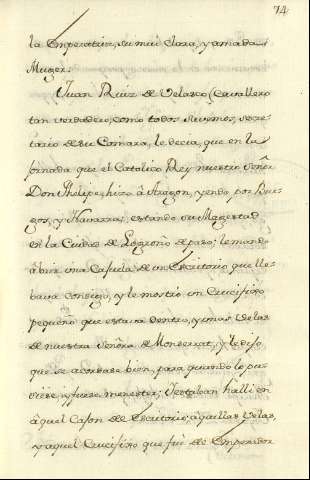 74
la Emperatriz, su mui clara, y amada
Muger.
Juan Ruiz de Velasco (Cavallero
tan verdadero, como todos savemos, secre-
tario de su Camara, le decia, que en la
jornada que el Catolico Rey nuestro Señor
Don Phelipe, hizo à Aragon, yendo por Bur-
gos, y Navarra; estando su Magestad
en la Ciudad de Logroño de paso; le mandò
àbrir una Casula de un Escritorio que lle-
baua consigo, y le mostrò un Crucifixo
pequeño que estaua dentro, y unas Velas
de nuestra Señora de Monserrat, y le dijo
que se acordase bien, para quando lo pi-
diese, y fuese menester; Y estaban halli en
àquel Cajon de Escritorio àquellas Velas,
y aquel Crucifixo que fue de Emperador